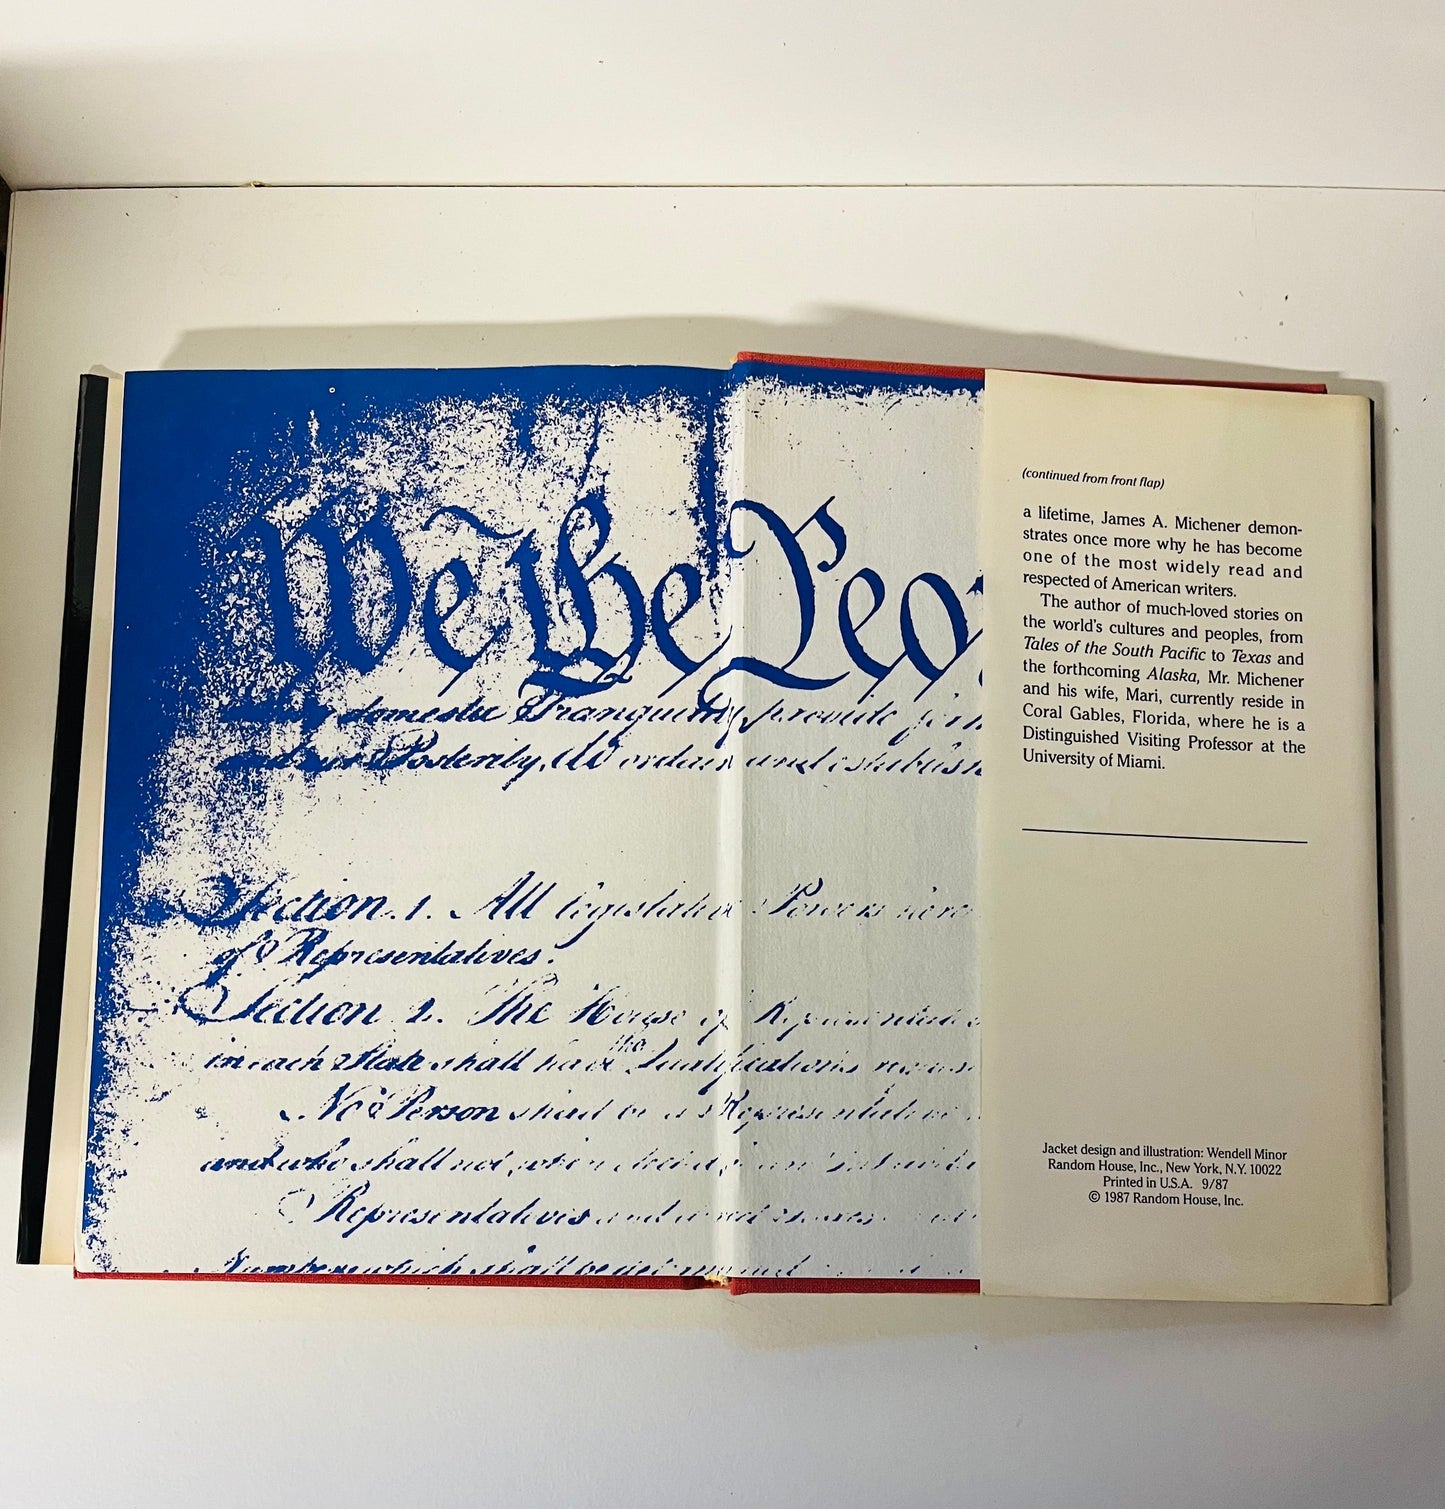 We the Peo
domestic Tranquility, provide for
Posterity, do ordain and establish
Section. 1. All legislative Powers here
of Representatives.
Section. 2. The House of Representatives
in each State shall have the Qualifications
No Person shall be a Representative
and who shall not, when elected,
Representatives and direct Taxes
Number which shall be determined
(continued from front flap)
a lifetime, James A. Michener demon-
strates once more why he has become
one of the most widely read and
respected of American writers.
The author of much-loved stories on
the world's cultures and peoples, from
Tales of the South Pacific to Texas and
the forthcoming Alaska, Mr. Michener
and his wife, Mari, currently reside in
Coral Gables, Florida, where he is a
Distinguished Visiting Professor at the
University of Miami.
Jacket design and illustration: Wendell Minor
Random House, Inc., New York, N.Y. 10022
Printed in U.S.A. 9/87
© 1987 Random House, Inc.